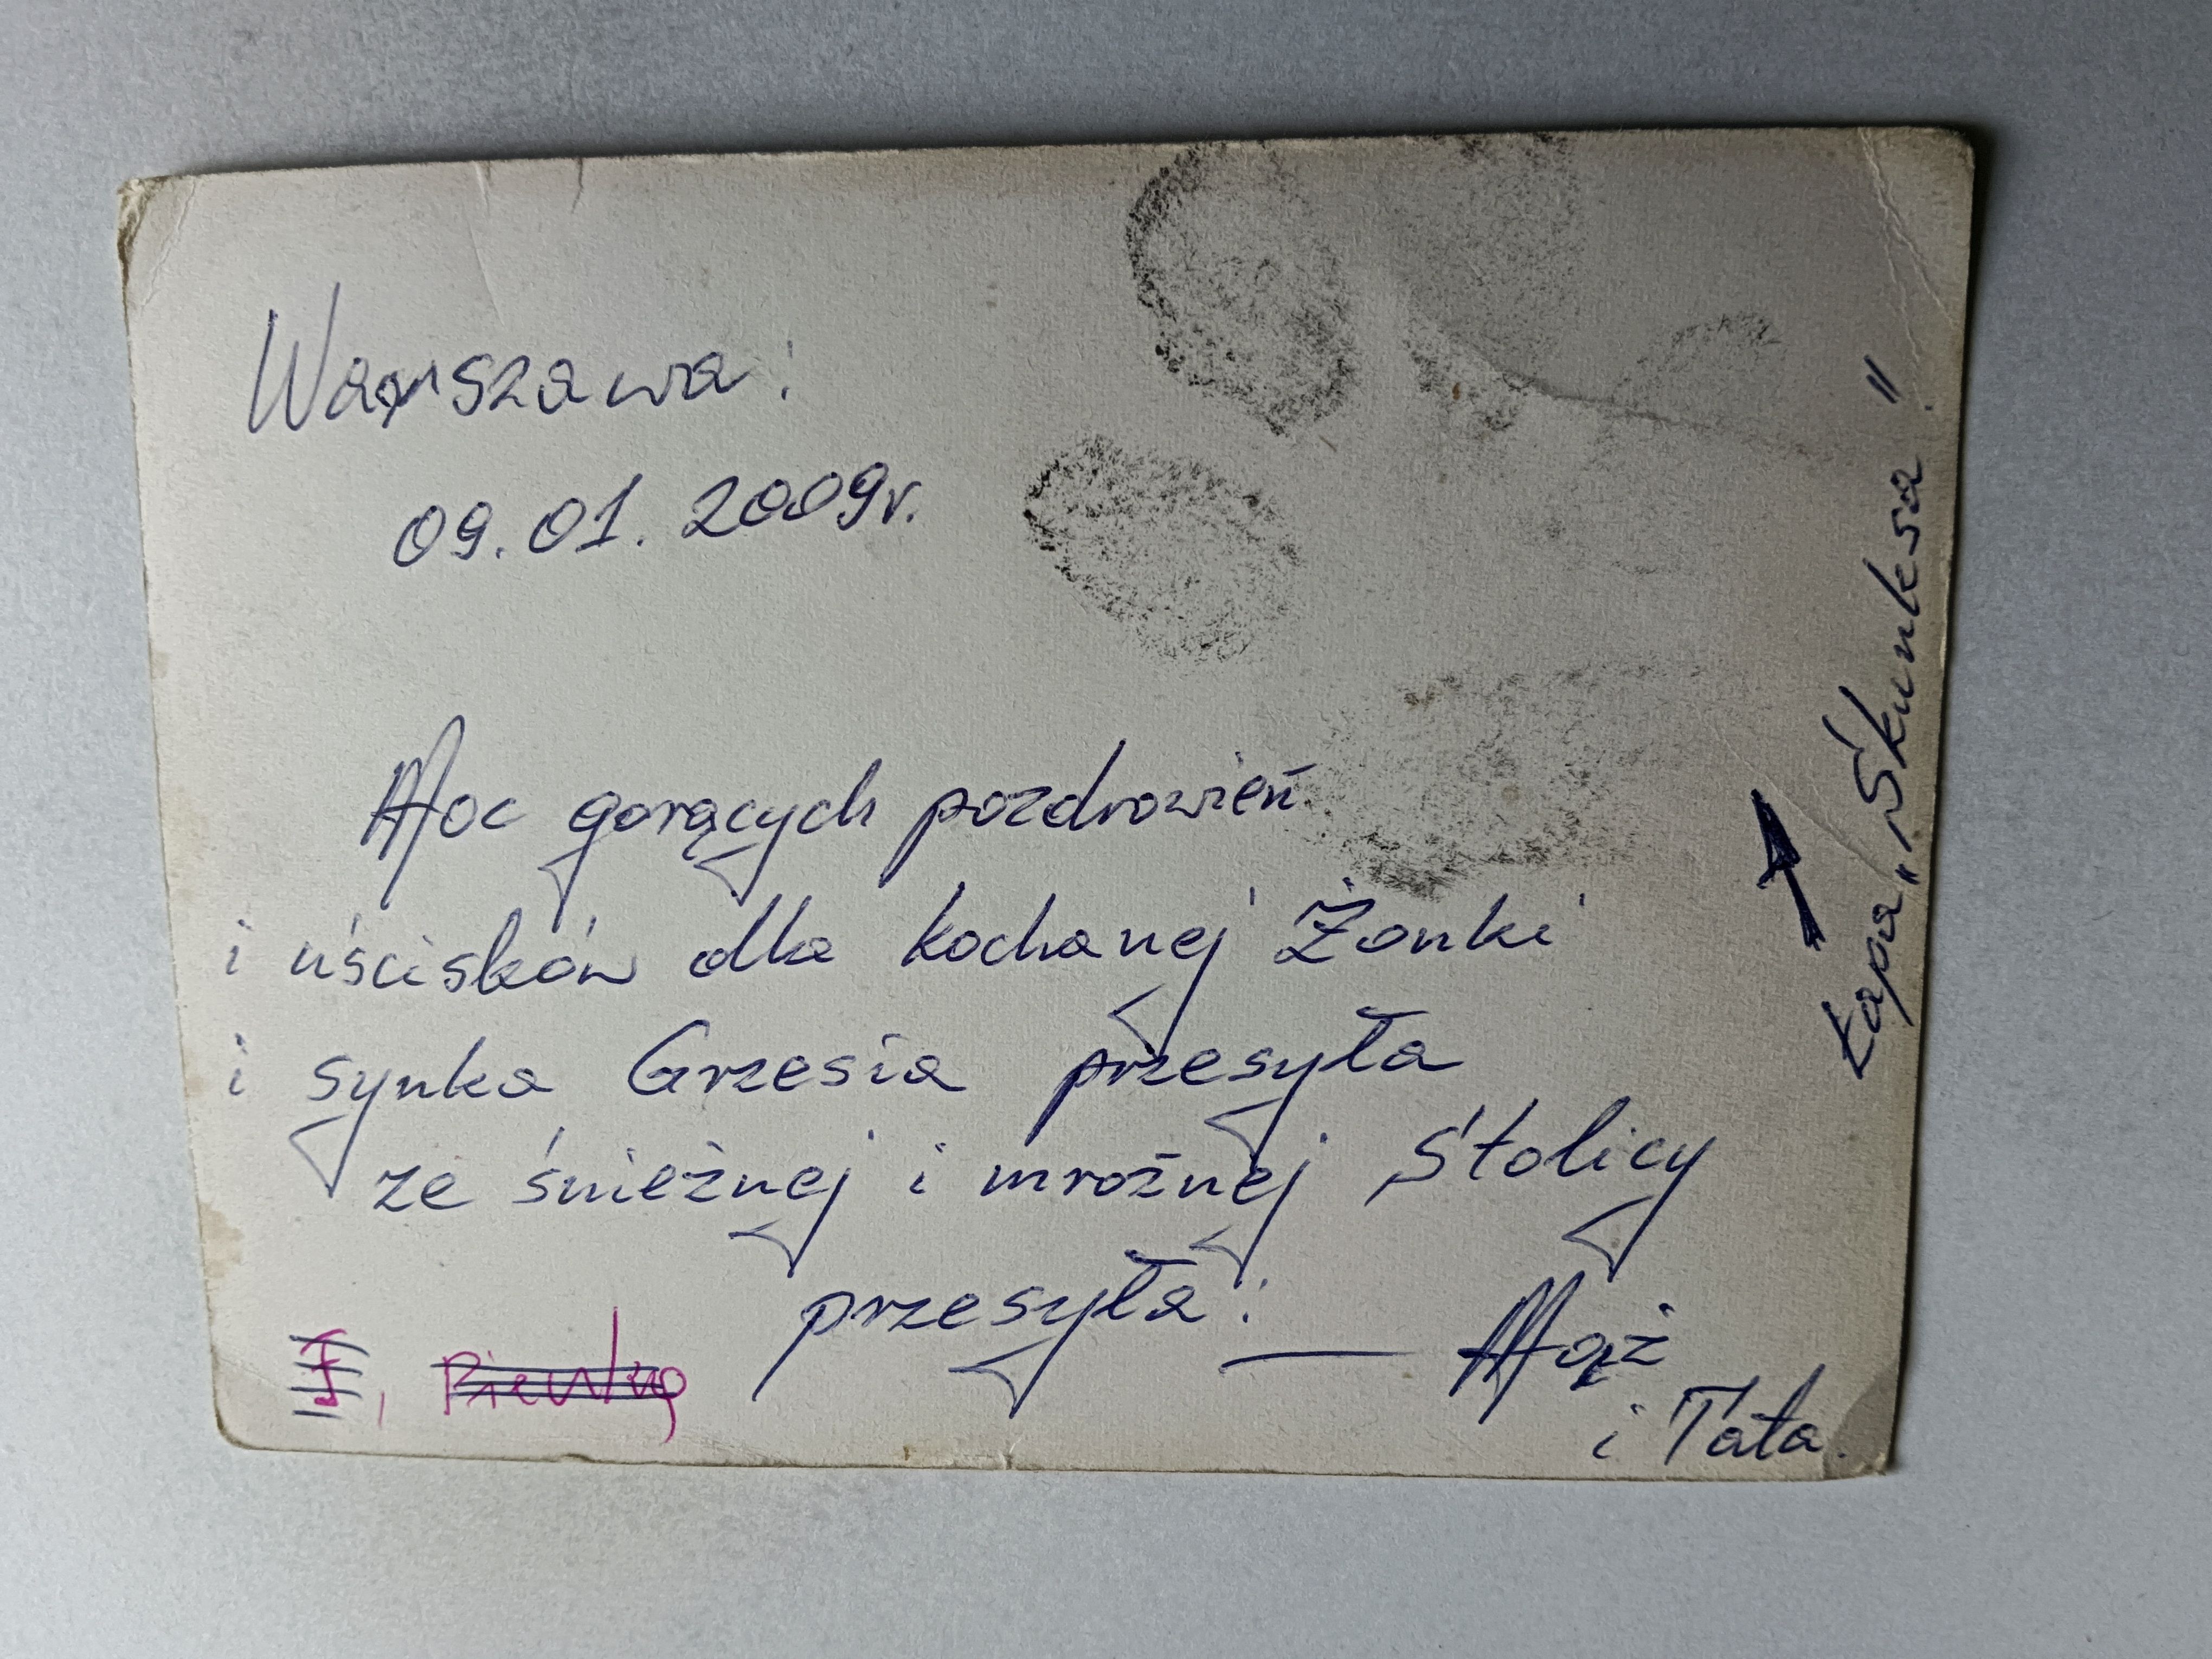 Warszawa:
09.01.2009r.
Moc gorących pozdrowień
i uścisków dla kochanej Żonki
i synka Grzesia przesyła
ze śnieżnej i mroźnej Stolicy
przesyła:
— Mąż
i Tata.
Łapa „Skunksa"!